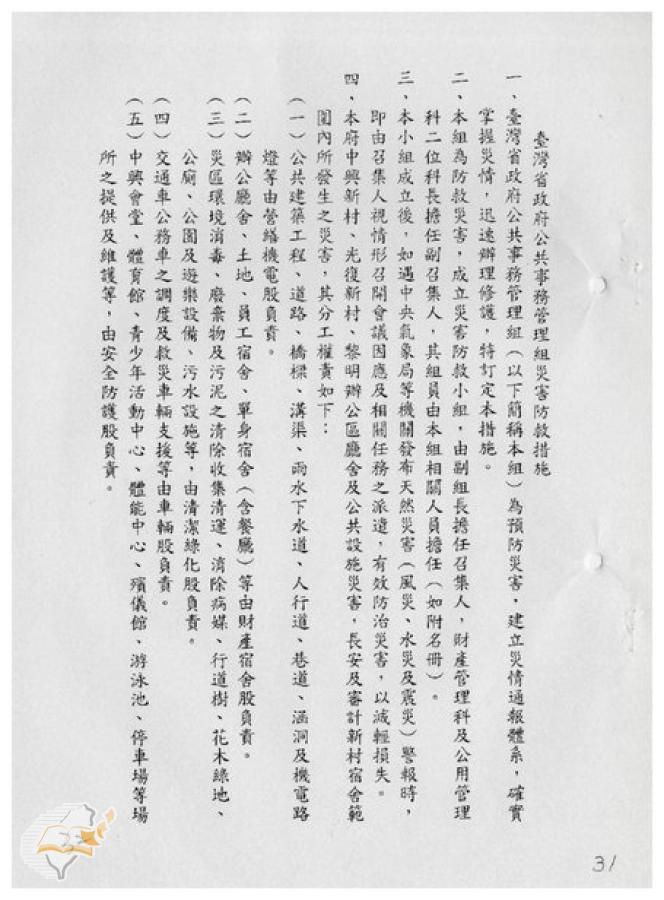 臺灣省政府公共事務管理組災害防救措施
一、臺灣省政府公共事務管理組（以下簡稱本組）為預防災害，建立災情通報體系，確實
掌握災情，迅速辦理修護，特訂定本措施。
二、本組為防救災害，成立災害防救小組，由副組長擔任召集人，財產管理科及公用管理
科二位科長擔任副召集人，其組員由本組相關人員擔任（如附名冊）。
三、本小組成立後，如遇中央氣象局等機關發布天然災害（風災、水災及震災）警報時，
即由召集人視情形召開會議因應及相關任務之派遣，有效防治災害，以減輕損失。
四、本府中興新村、光復新村、黎明辦公區廳舍及公共設施災害，長安及審計新村宿舍範
圍內所發生之災害，其分工權責如下：
（一）公共建築工程、道路、橋樑、溝渠、雨水下水道、人行道、巷道、涵洞及機電路
燈等由營繕機電股負責。
（二）辦公廳舍、土地、員工宿舍、單身宿舍（含餐廳）等由財產宿舍股負責。
（三）災區環境消毒、廢棄物及污泥之清除收集清運、消除病媒、行道樹、花木綠地、
公廁、公園及遊樂設備、污水設施等，由清潔綠化股負責。
（四）交通車公務車之調度及救災車輛支援等由車輛股負責。
（五）中興會堂、體育館、青少年活動中心、體能中心、殯儀館、游泳池、停車場等場
所之提供及維護等，由安全防護股負責。
31